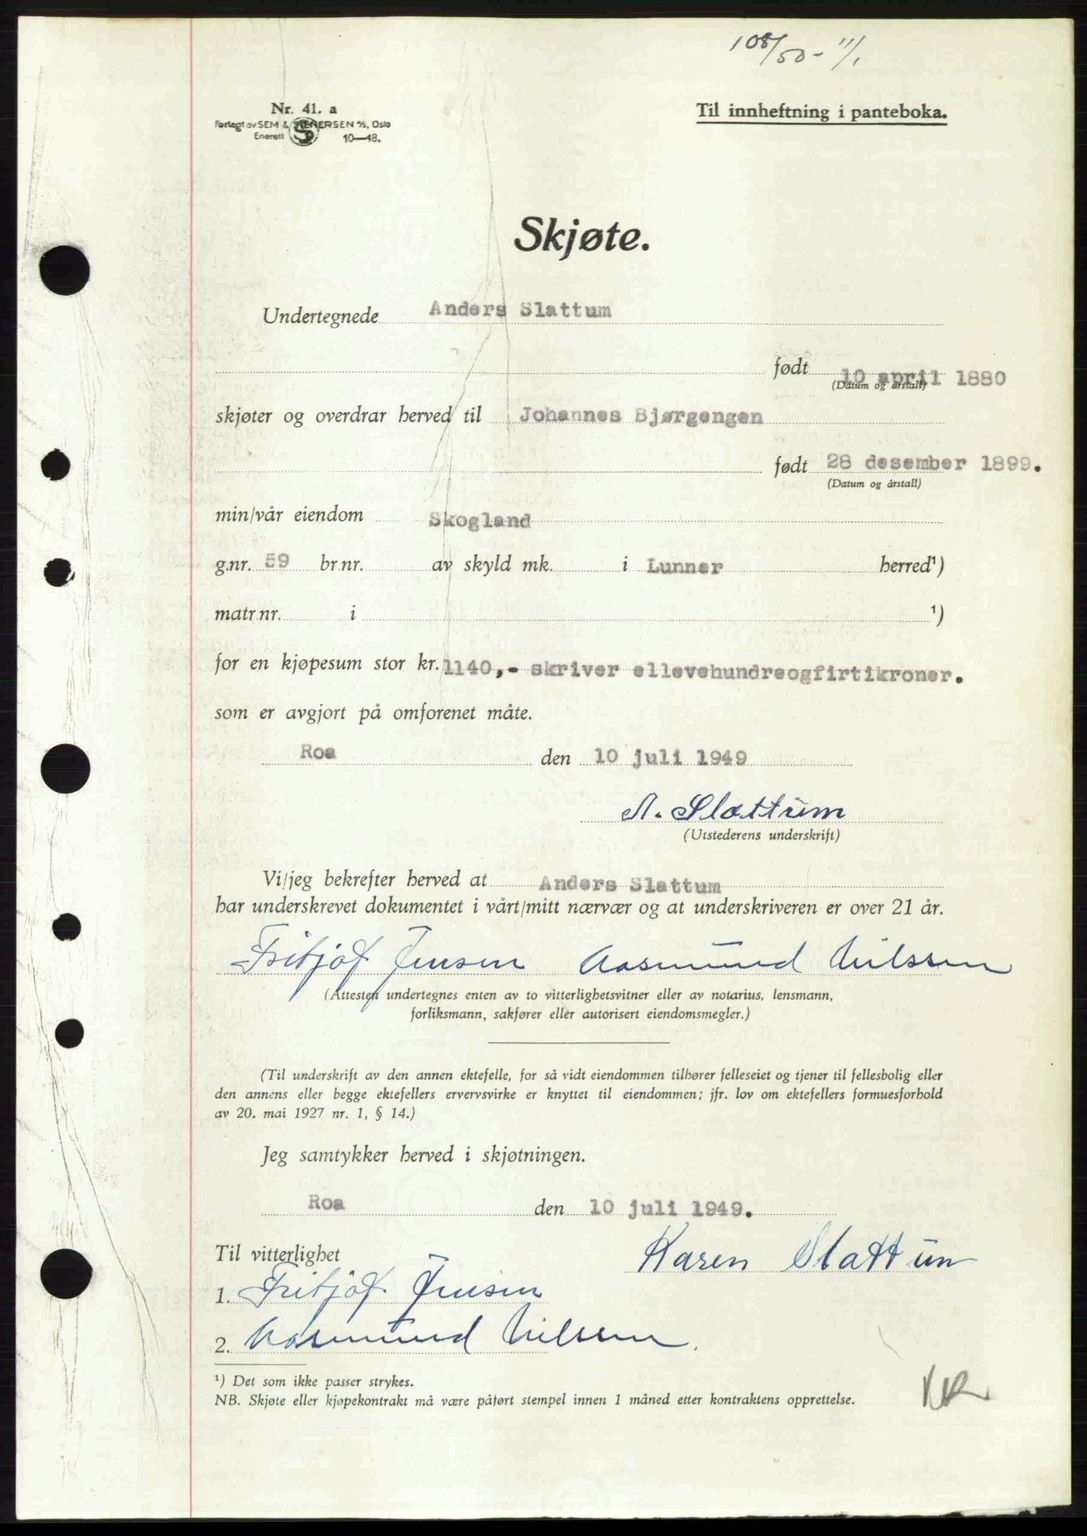 108/50 - 11/1
Nr. 41. a
Til innheftning i panteboka.
Forlagt av SEM & STENERSEN A/S, Oslo
Enerett 10—48.
Skjøte.
Undertegnede Anders Slattum
født 10 april 1880
(Datum og årstall)
skjøter og overdrar herved til Johannes Bjørgengen
født 28 desember 1899.
(Datum og årstall)
min/vår eiendom Skogland
g.nr. 59 br.nr. av skyld mk. i Lunner herred¹)
matr.nr. i ¹)
for en kjøpesum stor kr. 1140,- skriver ellevehundreogfirtikroner.
som er avgjort på omforenet måte.
Roa den 10 juli 1949
A. Slattum
(Utstederens underskrift)
Vi/jeg bekrefter herved at Anders Slattum
har underskrevet dokumentet i vårt/mitt nærvær og at underskriveren er over 21 år.
Fritjof Jensen Aasmund Nilssen
(Attesten undertegnes enten av to vitterlighetsvitner eller av notarius, lensmann,
forliksmann, sakfører eller autorisert eiendomsmegler.)
(Til underskrift av den annen ektefelle, for så vidt eiendommen tilhører felleseiet og tjener til fellesbolig eller
den annens eller begge ektefellers ervervsvirke er knyttet til eiendommen; jfr. lov om ektefellers formuesforhold
av 20. mai 1927 nr. 1, § 14.)
Jeg samtykker herved i skjøtningen.
Roa den 10 juli 1949.
Til vitterlighet Karen Slattun
1. Fritjof Jensen
2. Aasmund Nilssen.
¹) Det som ikke passer strykes.
NB. Skjøte eller kjøpekontrakt må være påført stempel innen 1 måned etter kontraktens opprettelse.